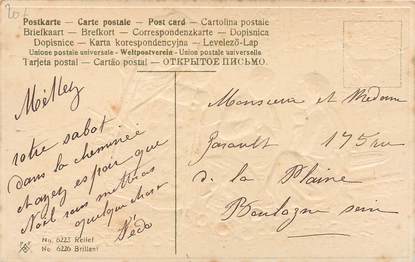 20f
Postkarte – Carte postale – Post card – Cartolina postale
Briefkaart – Brefkort – Correspondenzkarte – Dopisnica
Dopisnice – Karta korespondencyjna – Levelező-Lap
Union postale universelle – Weltpostverein – Unione postale universale
Tarjeta postal – Cartão postal – ОТКРЫТОЕ ПИСЬМО.
Mettez
votre sabot
dans la cheminée
et ayez espoir que
Noël vous mettras
quelque chose
Monsieur et Madame
175 rue
de la Plaine
Boulogne sur
No. 6223 Relief
No. 6226 Brillant